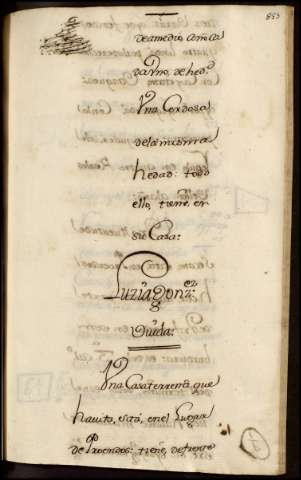 883
de a medio año ca
da Vno, de hed.ᵈ
Vna Cerdosa
dela misma
hedad: todo
ello, tiene, en
su Casa:
Luzia Gonz:ᵉᶻ
Viuda:
Vna Casa terrena, que
havita, está, en el Lugar
de Proendos: tiene, de frente